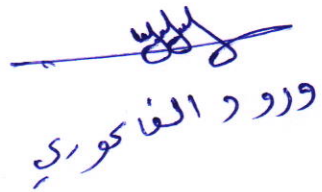 ورود الفاخوري